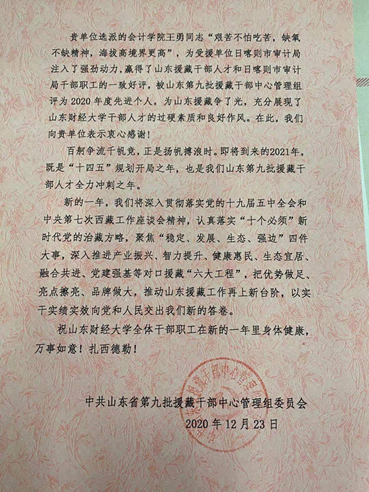 贵单位选派的会计学院王勇同志“艰苦不怕吃苦，缺氧
不缺精神，海拔高境界更高”，为受援单位日喀则市审计局
注入了强劲动力，赢得了山东援藏干部人才和日喀则市审计
局干部职工的一致好评，被山东第九批援藏干部中心管理组
评为2020年度先进个人，为山东援藏争了光，充分展现了
山东财经大学干部人才的过硬素质和良好作风。在此，我们
向贵单位表示衷心感谢！
百舸争流千帆竞，正是扬帆搏浪时。即将到来的2021年，
既是“十四五”规划开局之年，也是我们山东第九批援藏干
部人才全力冲刺之年。
新的一年，我们将深入贯彻落实党的十九届五中全会和
中央第七次西藏工作座谈会精神，认真落实“十个必须”新
时代党的治藏方略，聚焦“稳定、发展、生态、强边”四件
大事，深入推进产业振兴、智力提升、健康惠民、生态宜居、
融合共进、党建强基等对口援藏“六大工程”，把优势做足、
亮点擦亮、品牌做大，推动山东援藏工作再上新台阶，以实
干实绩实效向党和人民交出我们新的答卷。
祝山东财经大学全体干部职工在新的一年里身体健康，
万事如意！扎西德勒！
中共山东省第九批援藏干部中心管理组委员会
2020年12月23日